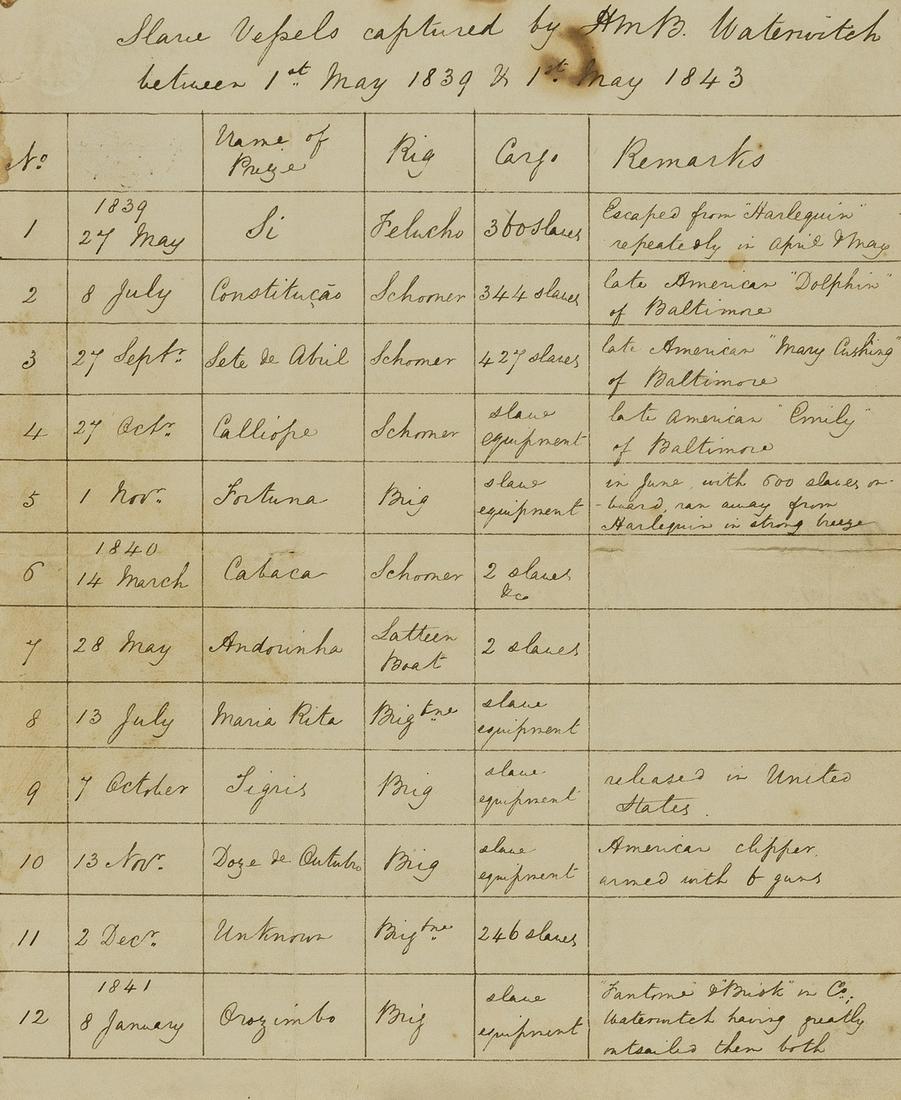 Slave Vessels captured by HMB. Waterwitch
between 1st May 1839 & 1st May 1843
No. Name of Prize Rig Cargo Remarks
1839
1 27 May Si Felucho 360 slaves Escaped from "Harlequin"
repeatedly in April & May
2 8 July Constitução Schooner 344 slaves late American "Dolphin"
of Baltimore
3 27 Septr. Sete de Abril Schooner 427 slaves late American "Mary Cushing"
of Baltimore
4 27 Octr. Calliope Schooner slave equipment late American "Emily"
of Baltimore
5 1 Novr. Fortuna Brig slave equipment in June, with 600 slaves on-
-board, ran away from
Harlequin in strong breeze
1840
6 14 March Cabaca Schooner 2 slaves
&c
7 28 May Andorinha Latteen Boat 2 slaves
8 13 July Maria Rita Brigtne. slave equipment
9 7 October Tigris Brig slave equipment released in United
States.
10 13 Novr. Doze de Outubro Brig slave equipment American clipper,
armed with 6 guns
11 2 Decr. Unknown Brigtne. 246 slaves
1841
12 8 January Orozimbo Brig slave equipment "Fantome" & "Brisk" in Co.;
Waterwitch having greatly
outsailed them both